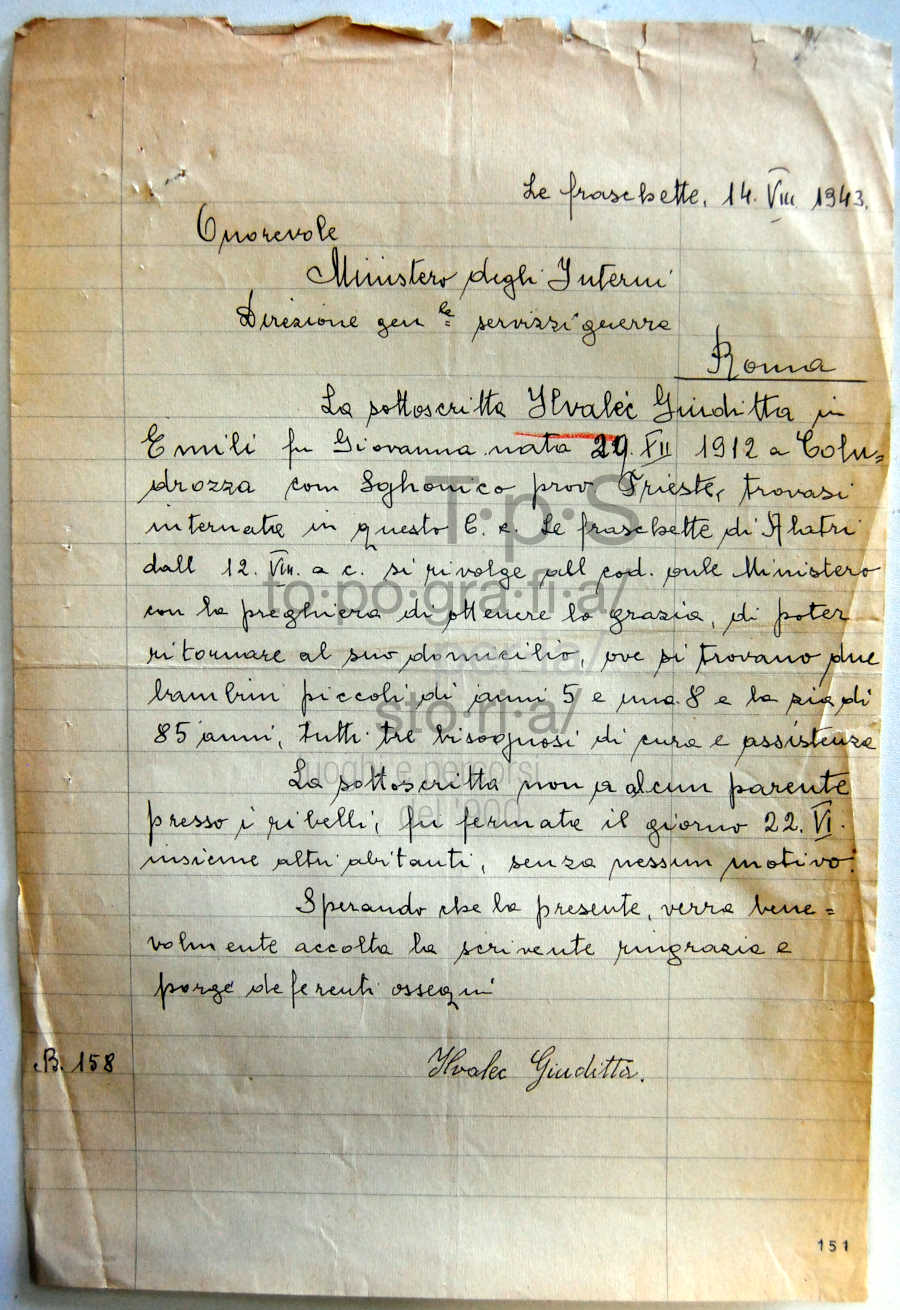 Le fraschette, 14. VIII 1943.
Onorevole
Ministero degli Interni
Direzione gen le servizzi guerra
Roma
La sottoscritta Hvalec Giuditta in
Emili fu Giovanna nata 29. XII 1912 a Colu=
drozza com Sghonico prov Trieste, trovasi
internata in questo C. c. Le fraschette di Alatri
dall 12. VIII. a c. si rivolge all cod. onle Ministero
con la preghiera di ottenere la grazia, di poter
ritornare al suo domicilio, ove si trovano due
bambini piccoli di anni 5 e una 8 e la zia di
85 anni, tutti tre bisognosi di cura e assistenza
La sottoscritta non a alcun parente
presso i ribelli, fu fermata il giorno 22. VI.
insieme altri abitanti, senza nessun motivo.
Sperando che la presente, verra bene=
volmente accolta la scrivente ringrazia e
porge deferenti ossequi
B. 158
Hvalec Giuditta.
151
T·p·S
to·po·gra·fi·a/
sto·ri·a/
luoghi e percorsi
del '900